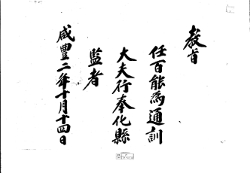 敎旨
任百能爲通訓
大夫行奉化縣
監者
咸豐二年十月十四日